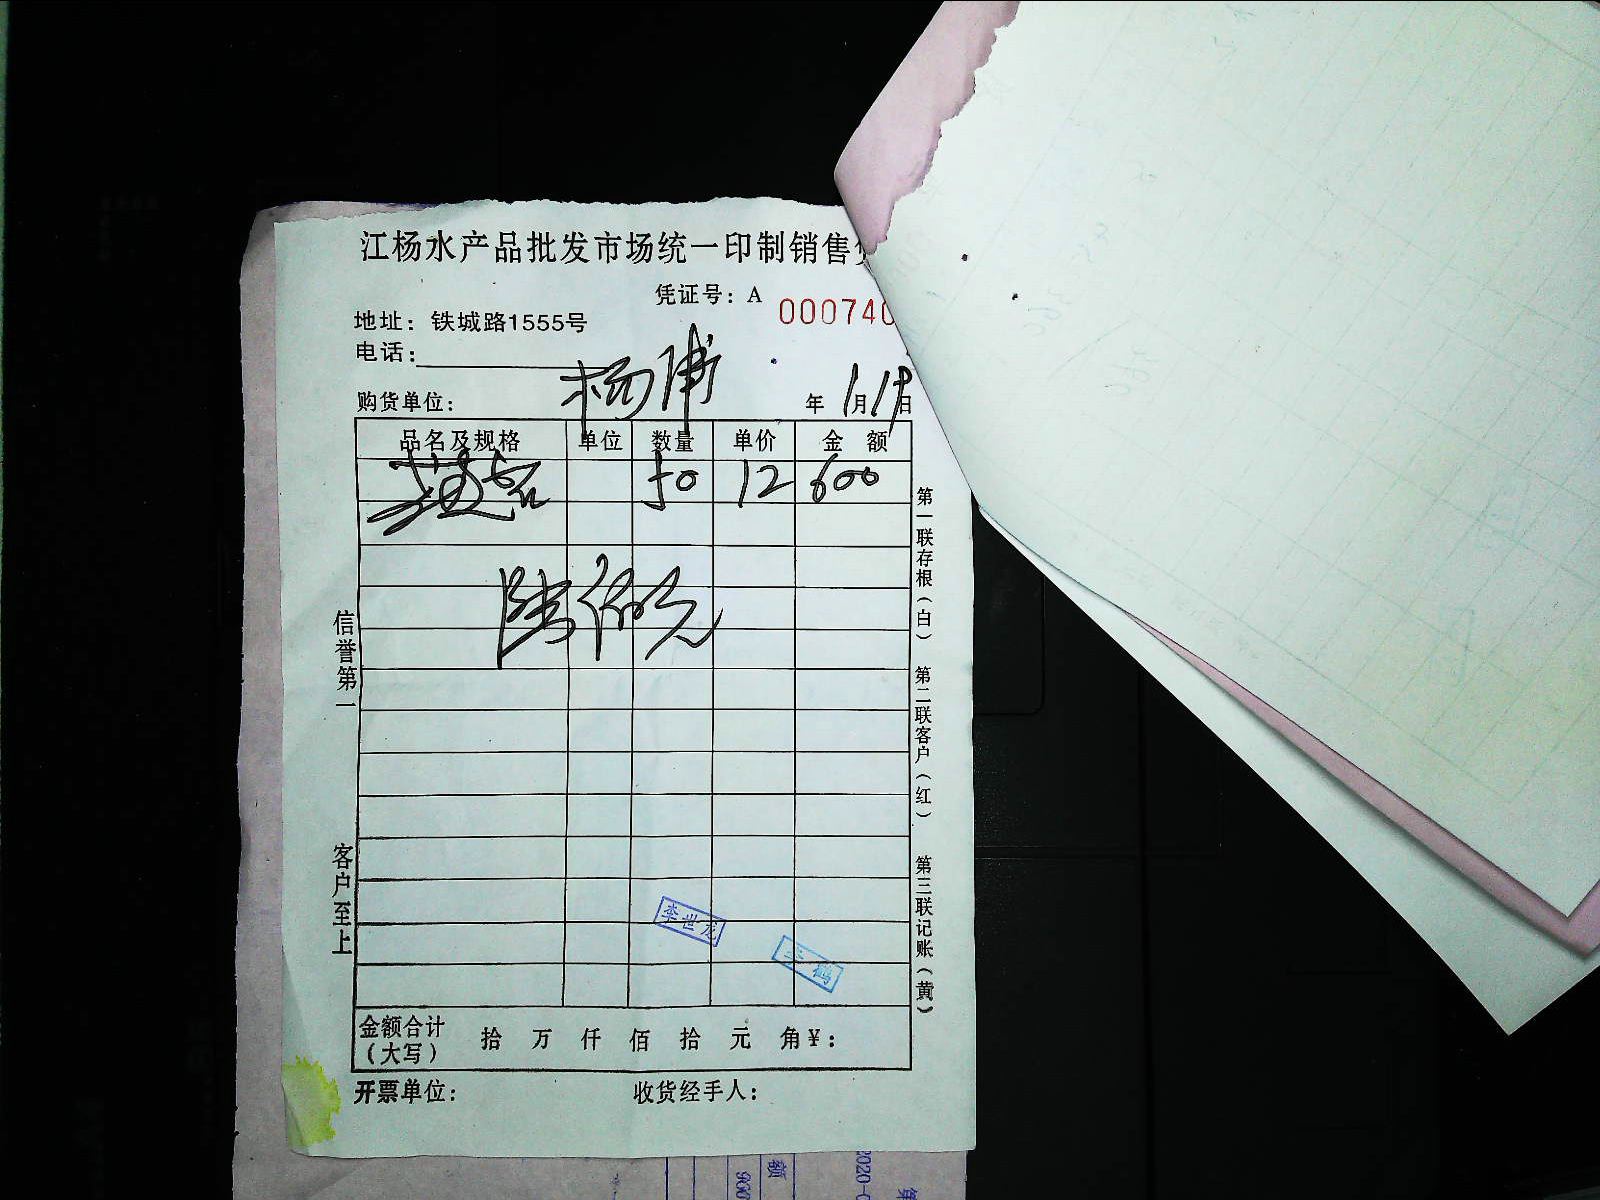 江杨水产品批发市场统一印制销售
凭证号：A 000740
地址：铁城路1555号
电话：
购货单位： 杨浦 年 1月19日
品名及规格 单位 数量 单价 金 额
50 12 600
陆佰元
第一联存根（白） 第二联客户（红） 第三联记账（黄）
信誉第一
客户至上
李世龙
金额合计 拾 万 仟 佰 拾 元 角¥：
（大写）
开票单位： 收货经手人：
额
900
2020-0